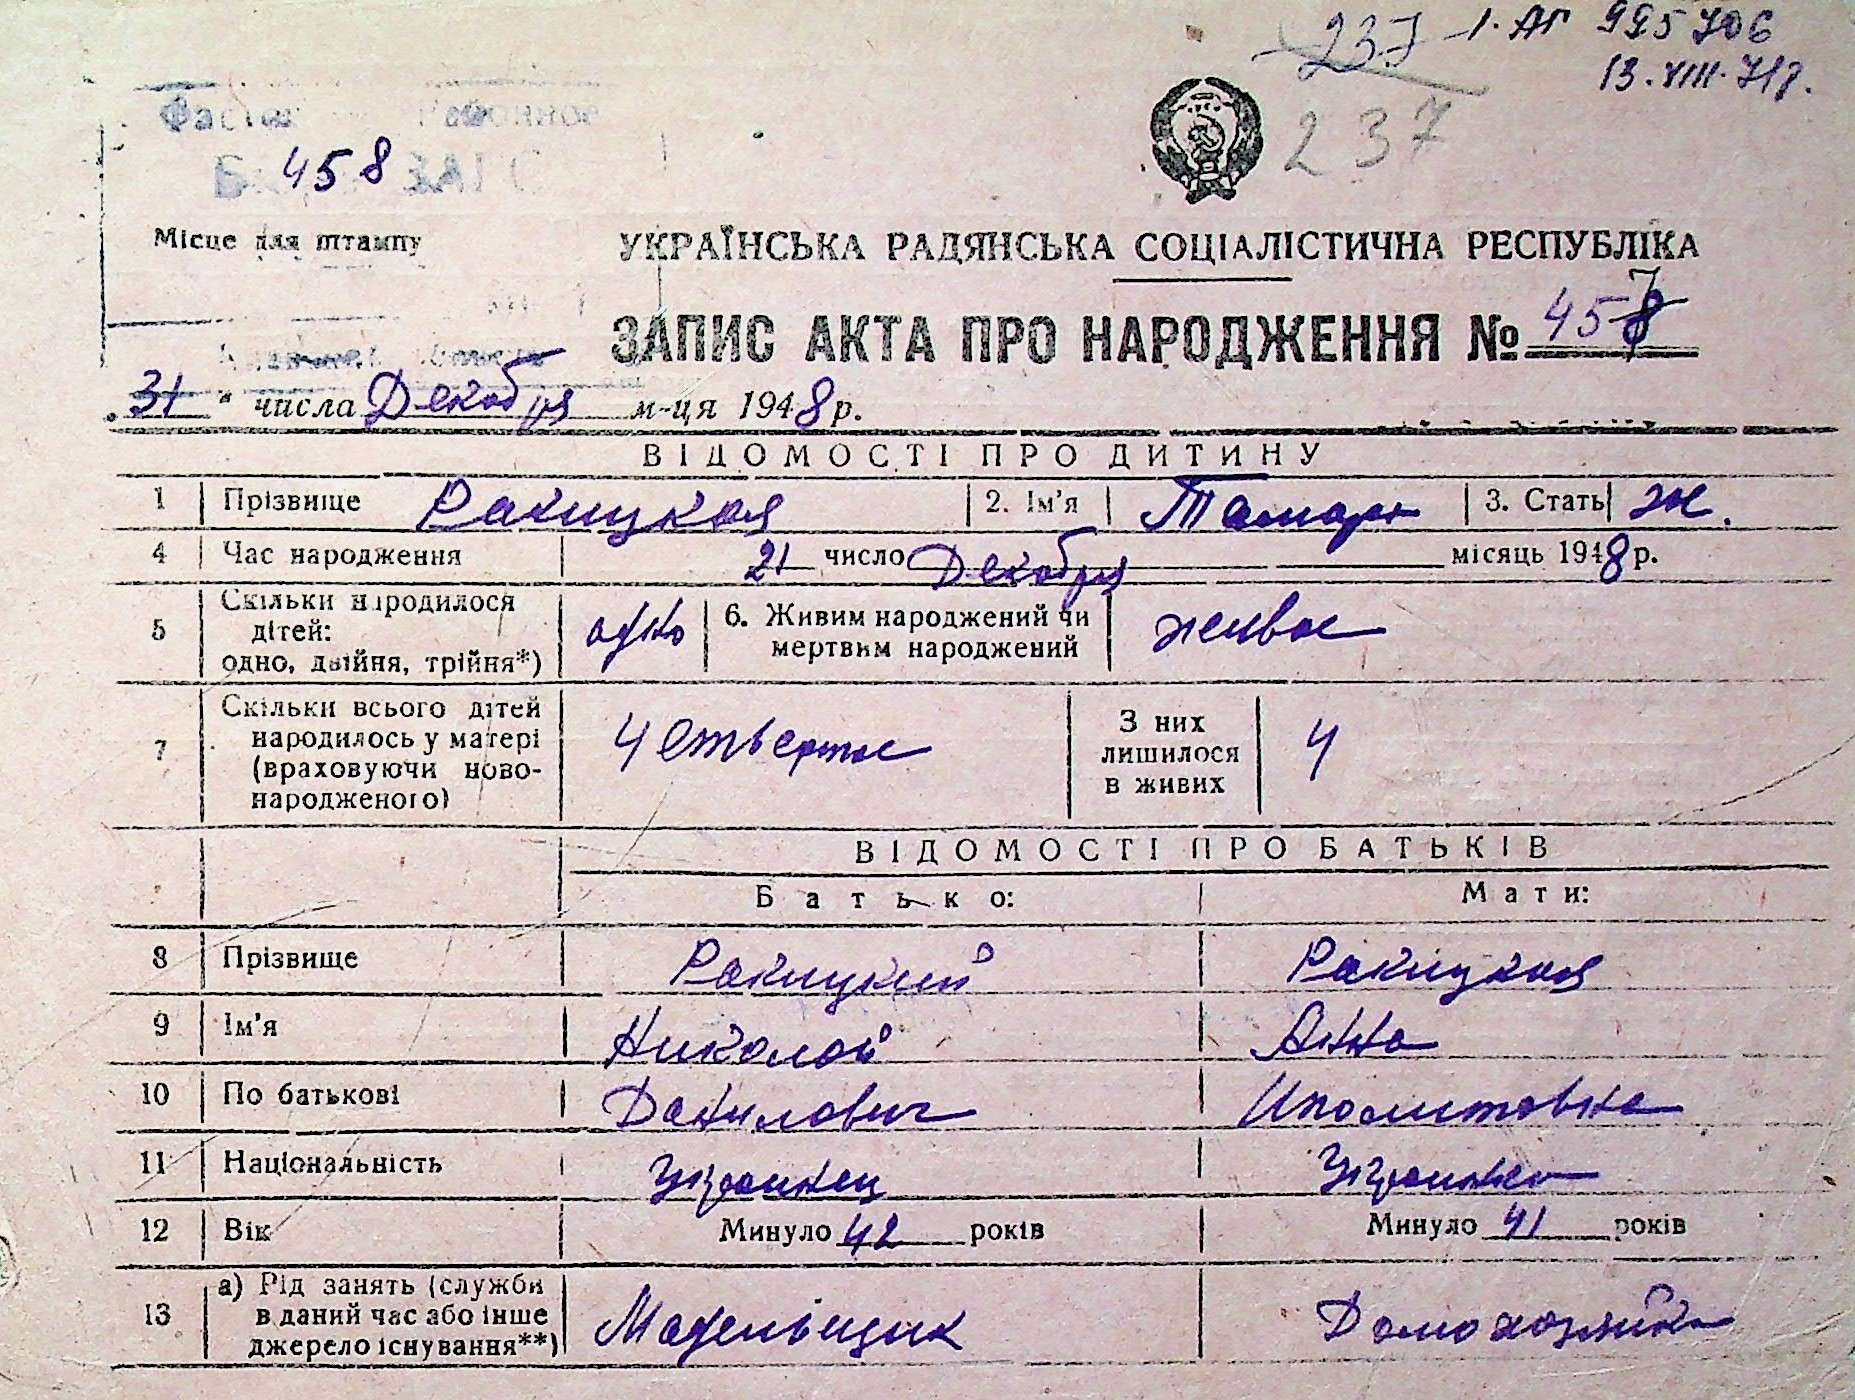 237 1. АГ 995706
13.VIII.71г.
237
Районное
ЗАГС
458
Місце для штампу
УКРАЇНСЬКА РАДЯНСЬКА СОЦІАЛІСТИЧНА РЕСПУБЛІКА
ЗАПИС АКТА ПРО НАРОДЖЕННЯ № 457
„31" числа Декабря м-ця 1948 р.
ВІДОМОСТІ ПРО ДИТИНУ
1 Прізвище Ракицкая 2. Ім'я Тамара 3. Стать ж.
4 Час народження 21 число Декабря місяць 1948 р.
5 Скільки народилося дітей: одно, двійня, трійня*) одно 6. Живим народжений чи мертвим народжений живое
7 Скільки всього дітей народилось у матері (враховуючи новонародженого) четвертое З них лишилося в живих 4
ВІДОМОСТІ ПРО БАТЬКІВ
Батько: Мати:
8 Прізвище Ракицкий Ракицкая
9 Ім'я Николай Анна
10 По батькові Данилович Иполитовна
11 Національність Украинец Украинка
12 Вік Минуло 42 років Минуло 41 років
13 а) Рід занять (служби в даний час або інше джерело існування**) Модельщик Домохозяйка